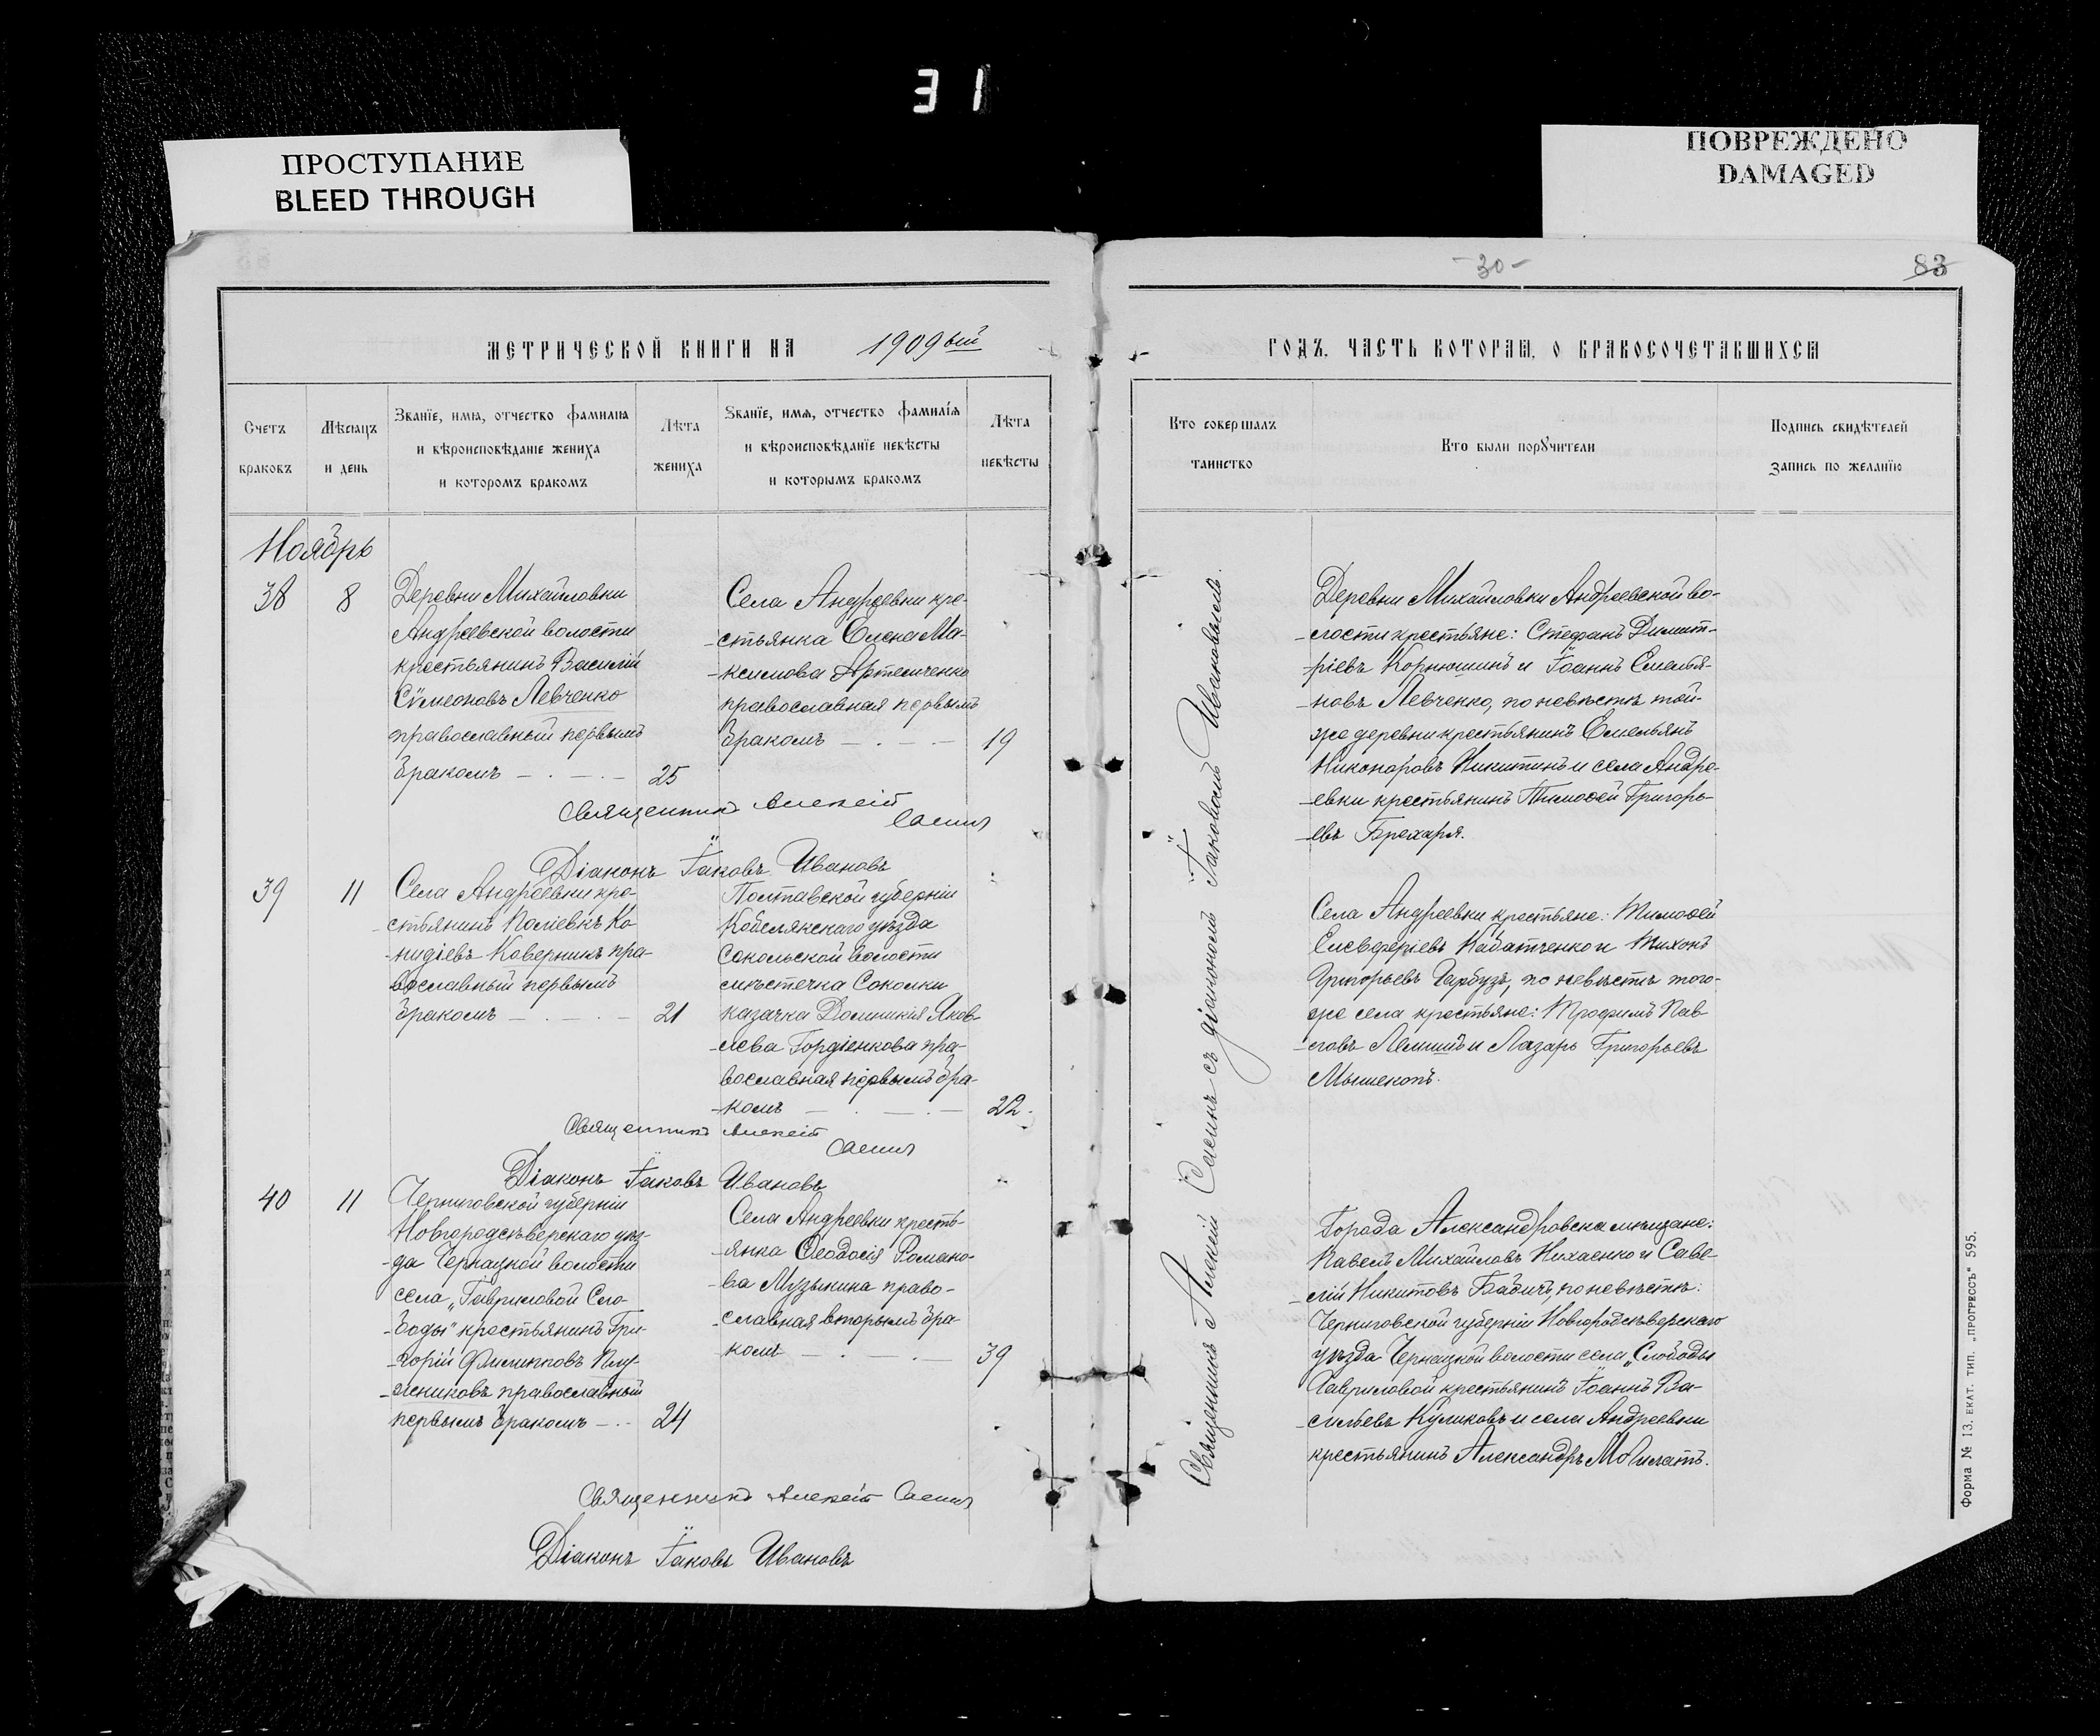 31
ПРОСТУПАНИЕ
BLEED THROUGH
ПОВРЕЖДЕНО
DAMAGED
-30-
83
МЕТРИЧЕСКОЙ КНИГИ НА 1909ый
ГОДЪ, ЧАСТЬ ВТОРАЯ, О БРАКОСОЧЕТАВШИХСЯ
Счетъ
браковъ
Мѣсяцъ
и день
Званїе, имя, отчество фамилія
и вѣроисповѣданіе жениха
и которомъ бракомъ
Лѣта
жениха
Званїе, имя, отчество фамилїя
и вѣроисповѣданїе невѣсты
и которымъ бракомъ
Лѣта
невѣсты
Кто совершалъ
таинство
Кто были порꙋчители
Подпись свидѣтелей
запись по желанїю
Ноябрь
38
8
Деревни Михайловки
Андреевской волости
крестьянинъ Василій
Сѵмеоновъ Левченко
православный первымъ
бракомъ — . — . —
25
Села Андреевки кре-
-стьянка Елена Ма-
-ксимова Артемченко
православная первымъ
бракомъ — . — . —
19
Деревни Михайловки Андреевской во-
-лости крестьяне: Стефанъ Димит-
-ріевъ Корнюшинъ и Іоаннъ Емелья-
-новъ Левченко, по невѣстѣ той-
же деревни крестьянинъ Емельянъ
Никоноровъ Никитинъ и села Андре-
-евки крестьянинъ Тимоѳей Григорь-
-евъ Брехаря.
Священникъ Алексій
Саенъ
Діаконъ Іаковъ Ивановъ
39
11
Села Андреевки кре-
-стьянинъ Поліевктъ Ко-
Каверникъ пра-
вославный первымъ
бракомъ — . — . —
21
Полтавской губерніи
Кобелякскаго уѣзда
Сокольской волости
мѣстечка Соколки
казачка Домникія Яков-
-лева Гордіенкова пра-
вославная первымъ бра-
-комъ — . — . —
22.
Села Андреевки крестьяне: Тимоѳей
Елевферіевъ Кабатченко и Тихонъ
Григорьевъ Гарбузъ, по невѣстѣ того-
же села крестьяне: Трофимъ Пав-
-ловъ Лемишъ и Лазарь Григорьевъ
Священникъ Алексій
Саенъ
Діаконъ Іаковъ Ивановъ
40
11
Черниговской губерніи
Новгородсѣверскаго уѣз-
-да Чернацкой волости
села „Гавриловой Сло-
-боды" крестьянинъ Гри-
-горій Филипповъ
православный
первымъ бракомъ — . -
24
Села Андреевки кресть-
-янка Ѳеодосія Романо-
-ва Музыкина право-
-славная вторымъ бра-
комъ — . — . —
39
Города Александровска мѣщане:
Павелъ Михайловъ Нихаенко и Саве-
-лій Никитовъ Бабичъ, по невѣстѣ:
Черниговской губерніи Новгородсѣверскаго
уѣзда Чернацкой волости села „Слободы
Гавриловой крестьянинъ Іоаннъ Ва-
-сильевъ Куликовъ и села Андреевки
крестьянинъ Александръ
Священникъ Алексій Саенъ
Діаконъ Іаковъ Ивановъ
Священникъ Алексій Саенъ съ діакономъ Іаковомъ Ивановымъ.
Форма № 13. ЕКАТ. ТИП. „ПРОГРЕССЪ" 595.